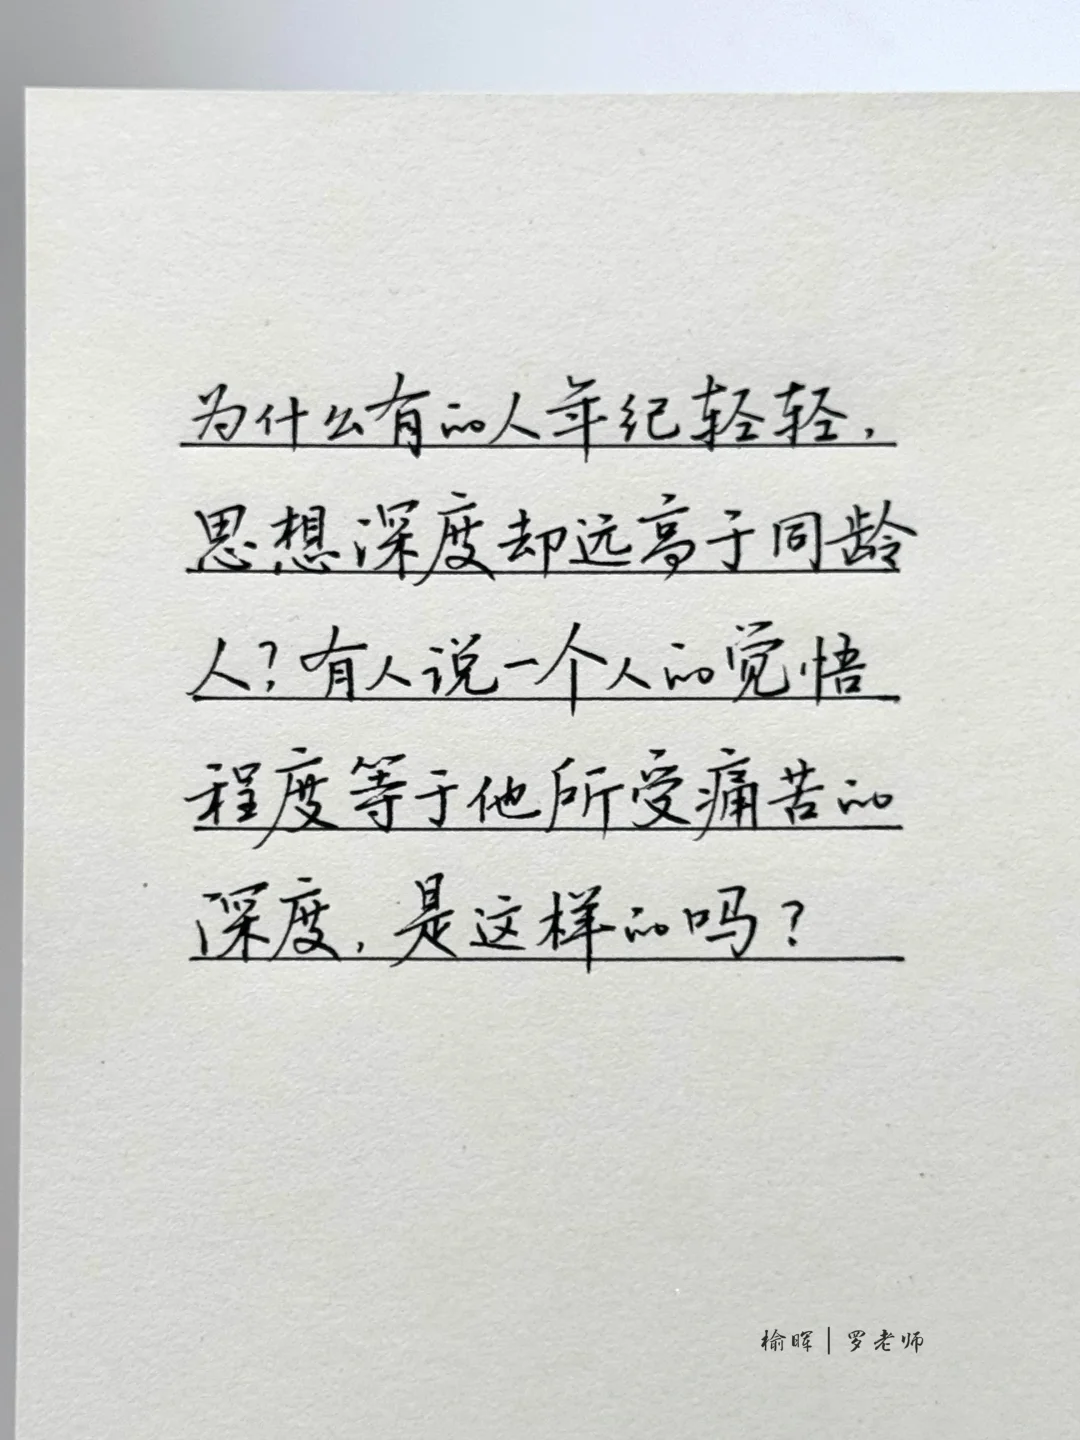 为什么有的人年纪轻轻，
思想深度却远高于同龄
人？有人说一个人的觉悟
程度等于他所受痛苦的
深度，是这样的吗？
榆晖 | 罗老师